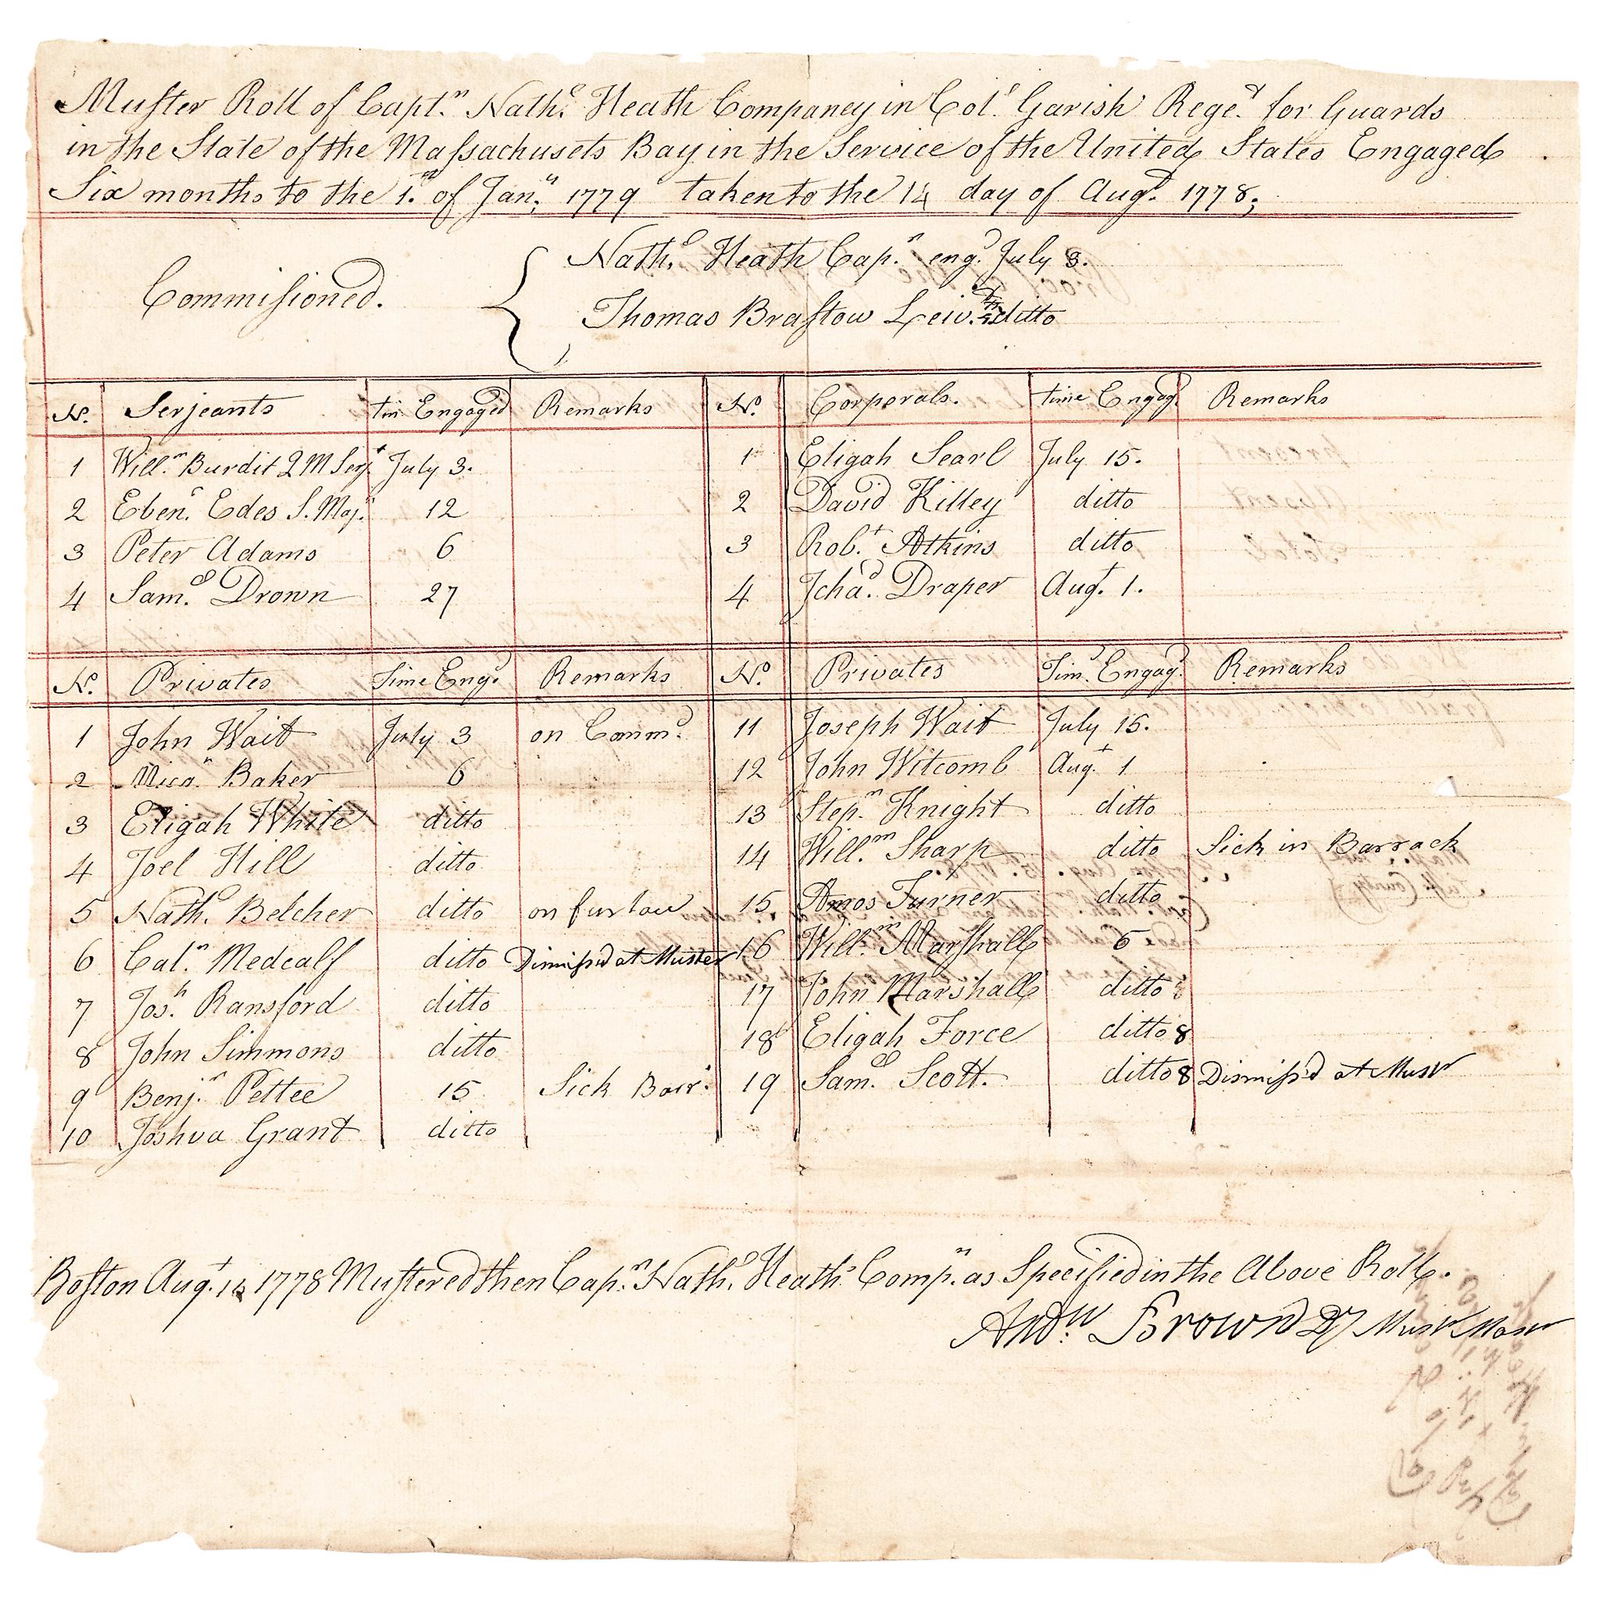 Muster Roll of Capt.n Nath.l Heath Companey in Col.o Garish Rege.t for Guards
in the State of the Massachusets Bay in the Service of the United States Engaged
Six months to the 1.st of Jan.y 1779 taken to the 14 day of Aug.t 1778;
Commisioned.
Nath.l Heath Cap.n eng.d July 3.
Thomas Brastow Leiv.t ditto
No. Serjeants tim Engaged Remarks No. Corperals. time Engag.d Remarks
1 Will.m Burdit Q M Serj.t July 3. 1 Eligah Searl July 15.
2 Eben.r Edes S. Maj.r 12 2 David Killey ditto
3 Peter Adams 6 3 Rob.t Atkins ditto
4 Sam.l Drown 27 4 Icha.d Draper Aug.t 1.
No. Privates Time Eng.d Remarks No. Privates Tim. Engag.d Remarks
1 John Wait July 3 on Comm.d 11 Joseph Wait July 15.
2 Mica.h Baker 6 12 John Witcomb Aug.t 1
3 Eligah White ditto 13 Step.n Knight ditto
4 Joel Hill ditto 14 Will.m Sharp ditto Sick in Barrack
5 Nath.l Belcher ditto on furlow 15 Amos Turner ditto
6 Cal.n Medcalf ditto Dismiss'd at Muster 16 Will.m Marshall 6
7 Jos.h Ransford ditto 17 John Marshall ditto 8
8 John Simmons ditto 18 Eligah Force ditto 8
9 Benj.n Pettee 15 Sick Barr.k 19 Sam.l Scott. ditto 8 Dismiss'd at Must.r
10 Joshua Grant ditto
Boston Aug.t 14 1778 Mustered then Cap.n Nath.l Heath Comp.n as Specified in the Above Roll.
And.w Brown Dy Must.r Mas.r